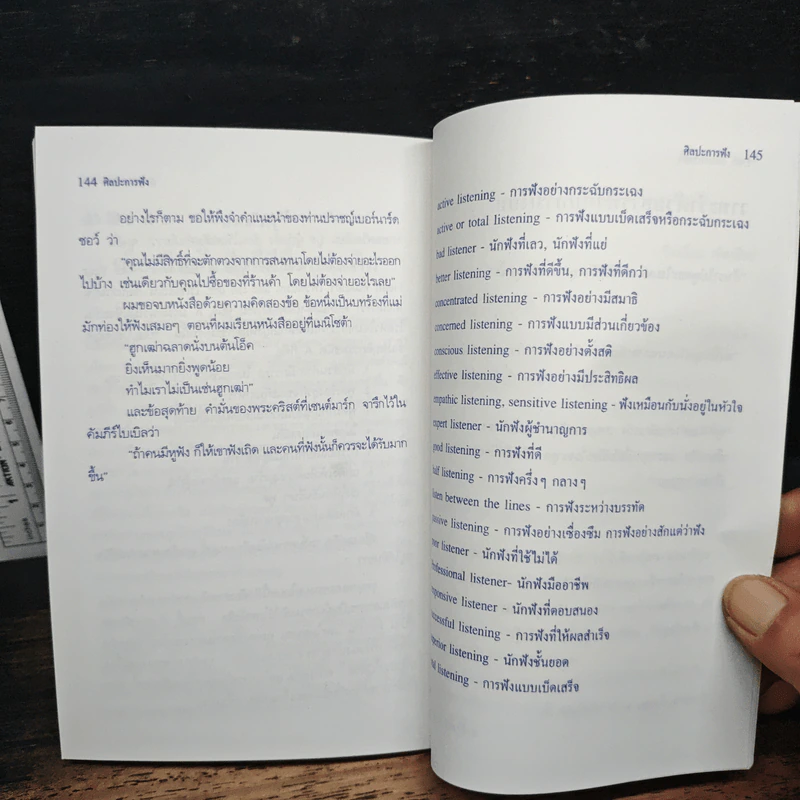 144 ศิลปะการฟัง
อย่างไรก็ตาม ขอให้พึงจำคำแนะนำของท่านปราชญ์เบอร์นาร์ด
ชอว์ ว่า
“คุณไม่มีสิทธิ์ที่จะตักตวงจากการสนทนาโดยไม่ต้องจ่ายอะไรออก
ไปบ้าง เช่นเดียวกับคุณไปซื้อของที่ร้านค้า โดยไม่ต้องจ่ายอะไรเลย”
ผมขอจบหนังสือด้วยความคิดสองข้อ ข้อหนึ่งเป็นบทร้องที่แม่
มักท่องให้ฟังเสมอๆ ตอนที่ผมเรียนหนังสืออยู่ที่เมนิโซต้า
“ฮูกเฒ่าฉลาดนั่งบนต้นโอ็ค
ยิ่งเห็นมากยิ่งพูดน้อย
ทำไมเราไม่เป็นเช่นฮูกเฒ่า”
และข้อสุดท้าย คำมั่นของพระคริสต์ที่เซนต์มาร์ก จารึกไว้ใน
คัมภีร์ไบเบิลว่า
“ถ้าคนมีหูฟัง ก็ให้เขาฟังเถิด และคนที่ฟังนั้นก็ควรจะได้รับมาก
ขึ้น”
ศิลปะการฟัง 145
active listening - การฟังอย่างกระฉับกระเฉง
active or total listening - การฟังแบบเบ็ดเสร็จหรือกระฉับกระเฉง
bad listener - นักฟังที่เลว, นักฟังที่แย่
better listening - การฟังที่ดีขึ้น, การฟังที่ดีกว่า
concentrated listening - การฟังอย่างมีสมาธิ
concerned listening - การฟังแบบมีส่วนเกี่ยวข้อง
conscious listening - การฟังอย่างตั้งสติ
effective listening - การฟังอย่างมีประสิทธิผล
empathic listening, sensitive listening - ฟังเหมือนกับนั่งอยู่ในหัวใจ
expert listener - นักฟังผู้ชำนาญการ
good listening - การฟังที่ดี
half listening - การฟังครึ่งๆ กลางๆ
listen between the lines - การฟังระหว่างบรรทัด
passive listening - การฟังอย่างเซื่องซึม การฟังอย่างสักแต่ว่าฟัง
poor listener - นักฟังที่ใช้ไม่ได้
professional listener- นักฟังมืออาชีพ
responsive listener - นักฟังที่ตอบสนอง
successful listening - การฟังที่ให้ผลสำเร็จ
superior listening - นักฟังชั้นยอด
total listening - การฟังแบบเบ็ดเสร็จ